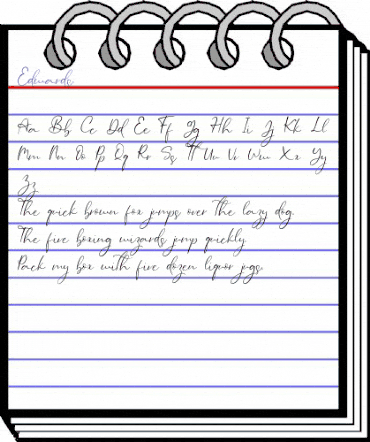 Edwards
Aa Bb Cc Dd Ee Ff Gg Hh Ii Jj Kk Ll
Mm Nn Oo Pp Qq Rr Ss Tt Uu Vv Ww Xx Yy
Zz
The quick brown fox jumps over the lazy dog.
The five boxing wizards jump quickly.
Pack my box with five dozen liquor jugs.